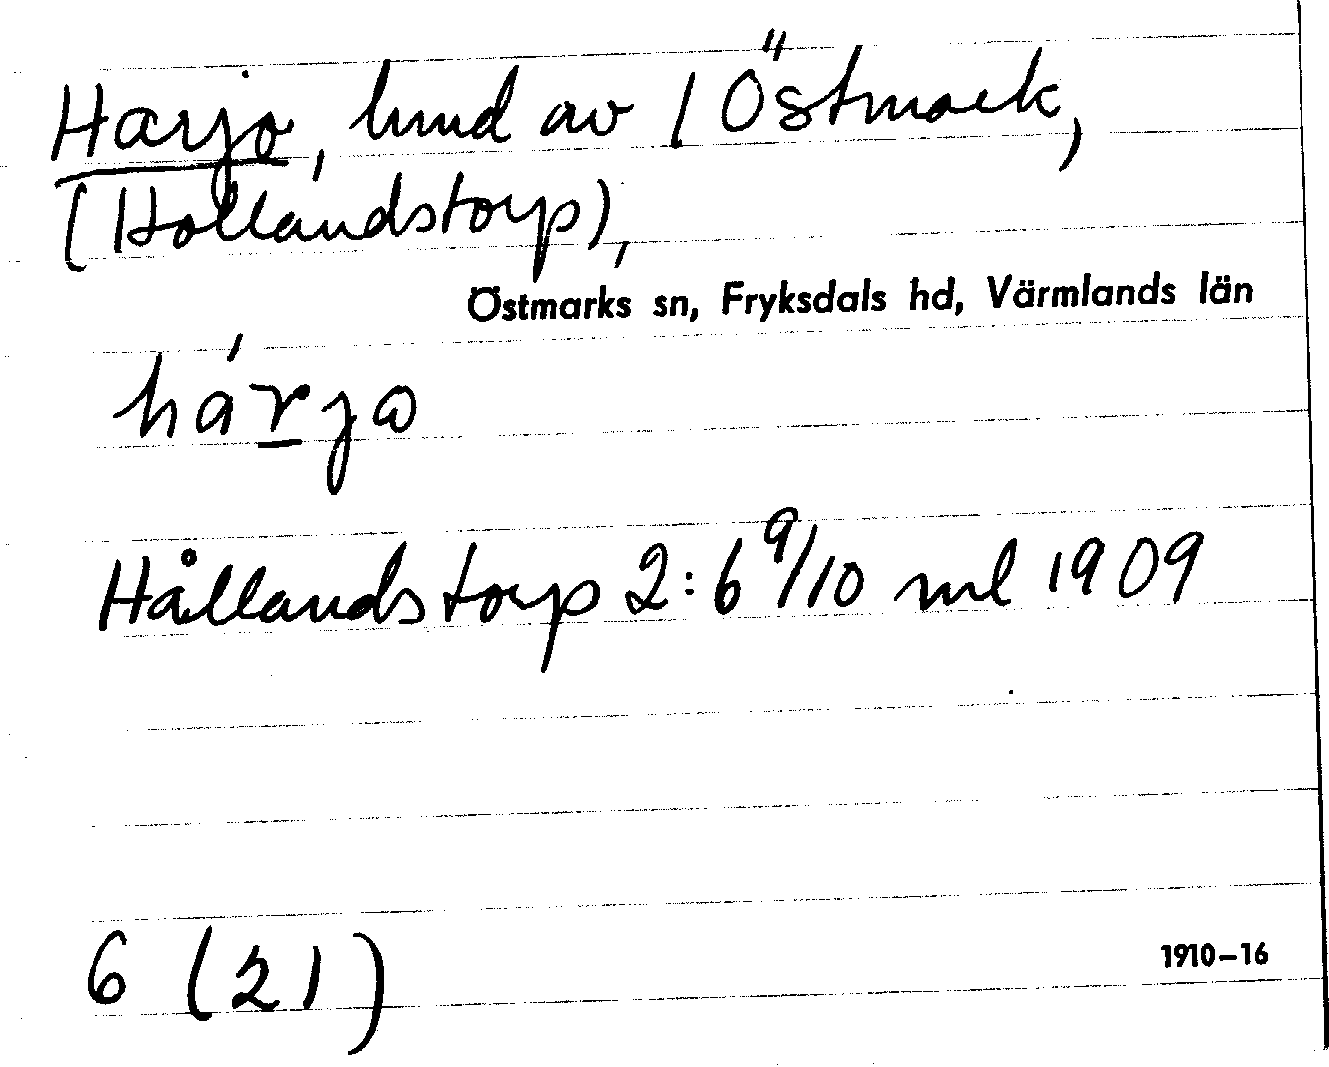 Harjo, lmd av 1 Östmark,
(Hollandstorp),
Östmarks sn, Fryksdals hd, Värmlands län
hárjo
Hållandstorp 2:6 9/10 ml 1909
6 (21)
1910–16